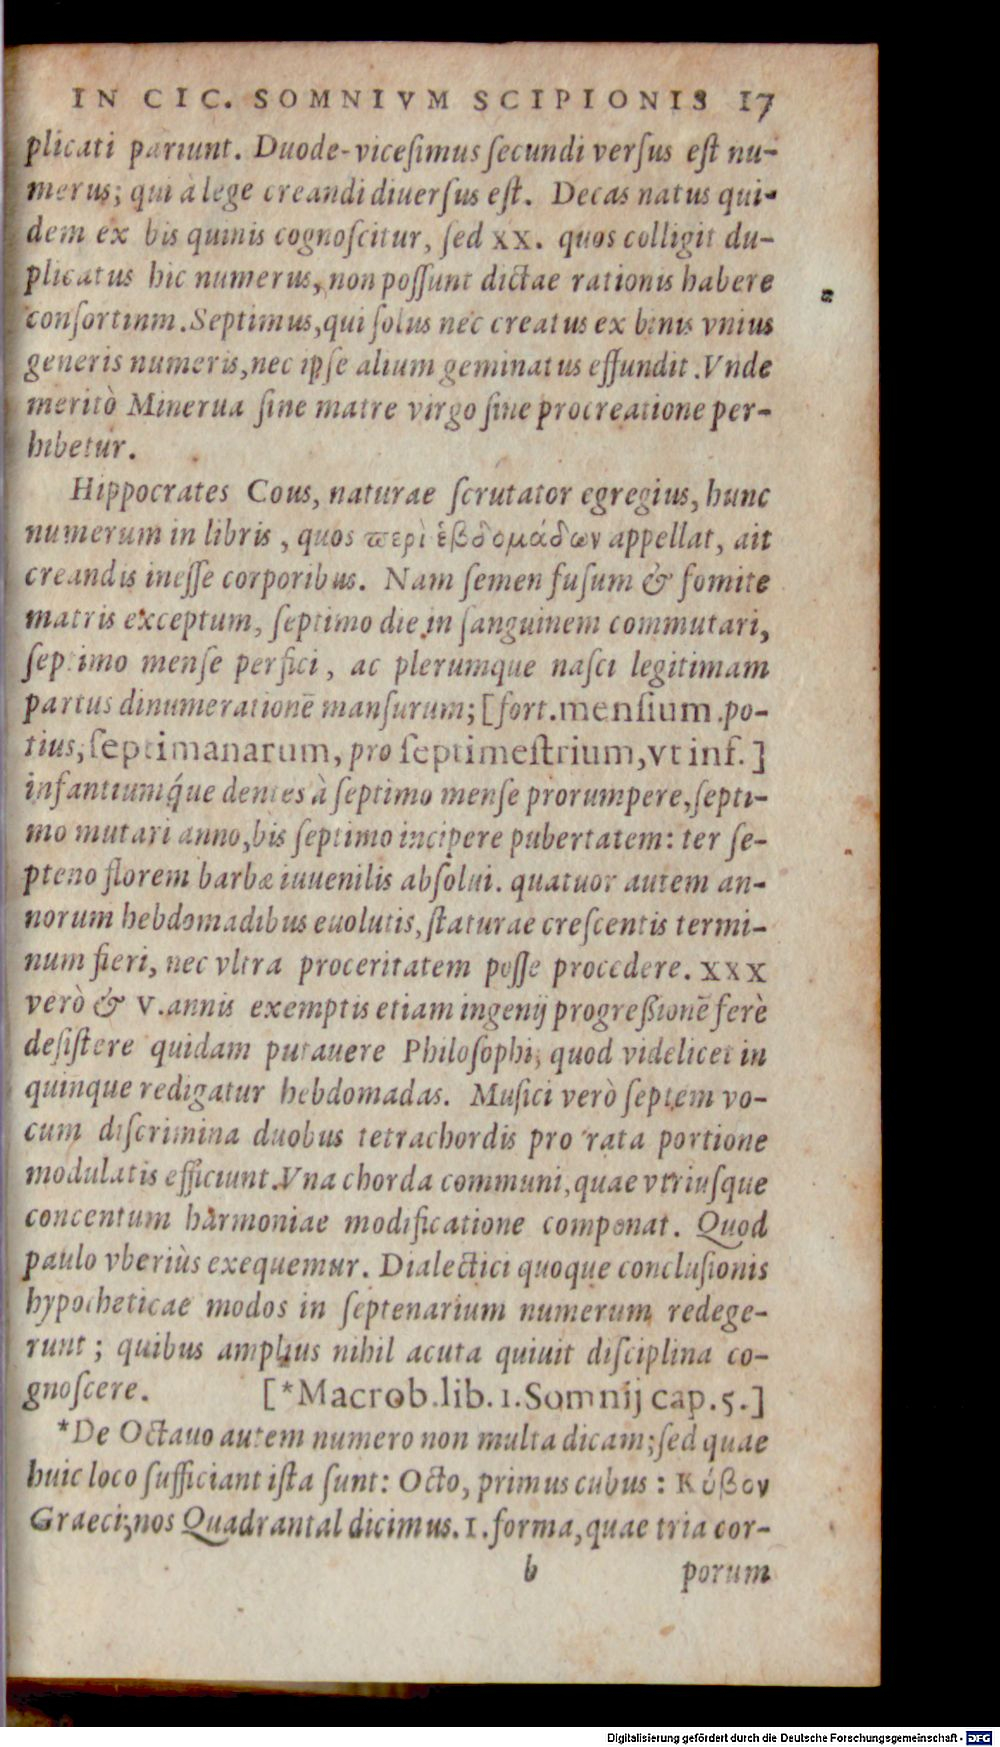 IN CIC. SOMNIVM SCIPIONIS 17
plicati pariunt. Duode-vicesimus secundi versus est nu-
merus; qui à lege creandi diuersus est. Decas natus qui-
dem ex bis quinis cognoscitur, sed XX. quos colligit du-
plicatus hic numerus, non possunt dictae rationis habere
consortinm. Septimus, qui solus nec creatus ex binis vnius
generis numeris, nec ipse alium geminatus effundit. Vnde
meritò Minerua sine matre virgo sine procreatione per-
hibetur.
Hippocrates Cous, naturae scrutator egregius, hunc
numerum in libris, quos περὶ ἑβδομάδων appellat, ait
creandis inesse corporibus. Nam semen fusum & fomite
matris exceptum, septimo die in sanguinem commutari,
septimo mense perfici, ac plerumque nasci legitimam
partus dinumerationē mansurum; [fort. mensium. po-
tius, septimanarum, pro septimestrium, vt inf.]
infantiumq́ue dentes à septimo mense prorumpere, septi-
mo mutari anno, bis septimo incipere pubertatem: ter se-
pteno florem barbæ iuuenilis absolui. quatuor autem an-
norum hebdomadibus euolutis, staturae crescentis termi-
num fieri, nec vltra proceritatem posse procedere. XXX
verò & V. annis exemptis etiam ingenij progreßionē ferè
desistere quidam putauere Philosophi; quod videlicet in
quinque redigatur hebdomadas. Musici verò septem vo-
cum discrimina duobus tetrachordis pro rata portione
modulatis efficiunt. Vna chorda communi, quae vtriusque
concentum harmoniae modificatione componat. Quod
paulo vberiùs exequemur. Dialectici quoque conclusionis
hypotheticae modos in septenarium numerum redege-
runt; quibus amplius nihil acuta quiuit disciplina co-
gnoscere. [*Macrob. lib. 1. Somnij cap. 5.]
*De Octauo autem numero non multa dicam; sed quae
huic loco sufficiant ista sunt: Octo, primus cubus: Κύβον
Graeci; nos Quadrantal dicimus. 1. forma, quae tria cor-
b porum
Digitalisierung gefördert durch die Deutsche Forschungsgemeinschaft - DFG